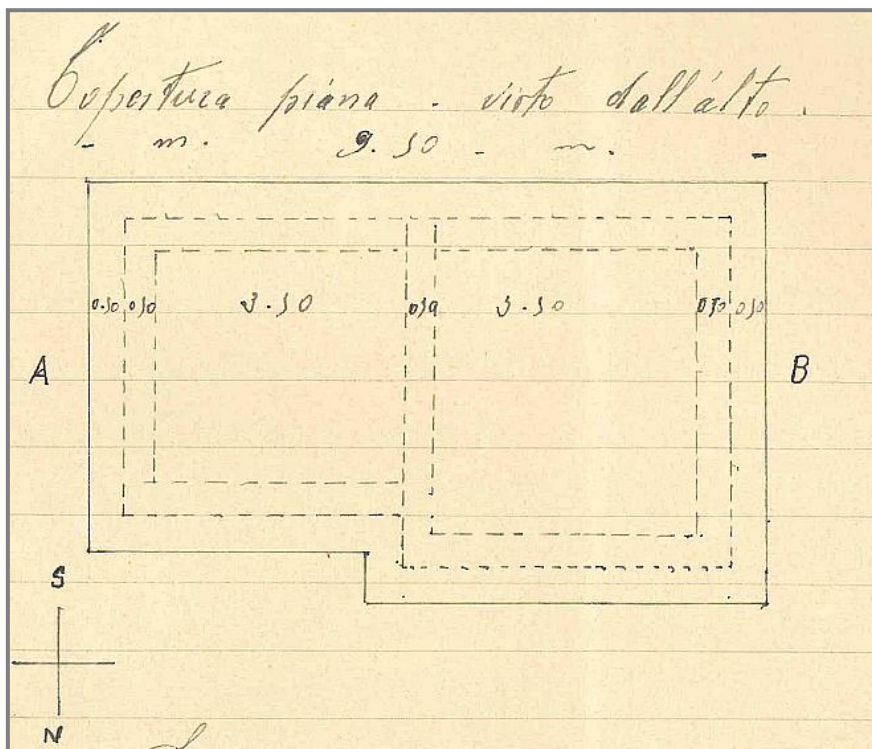 Copertura piana - visto dall'alto.
- m. 9.50 - m. -
0.50 050 3.50 050 3.50 050 050
A B
S
N